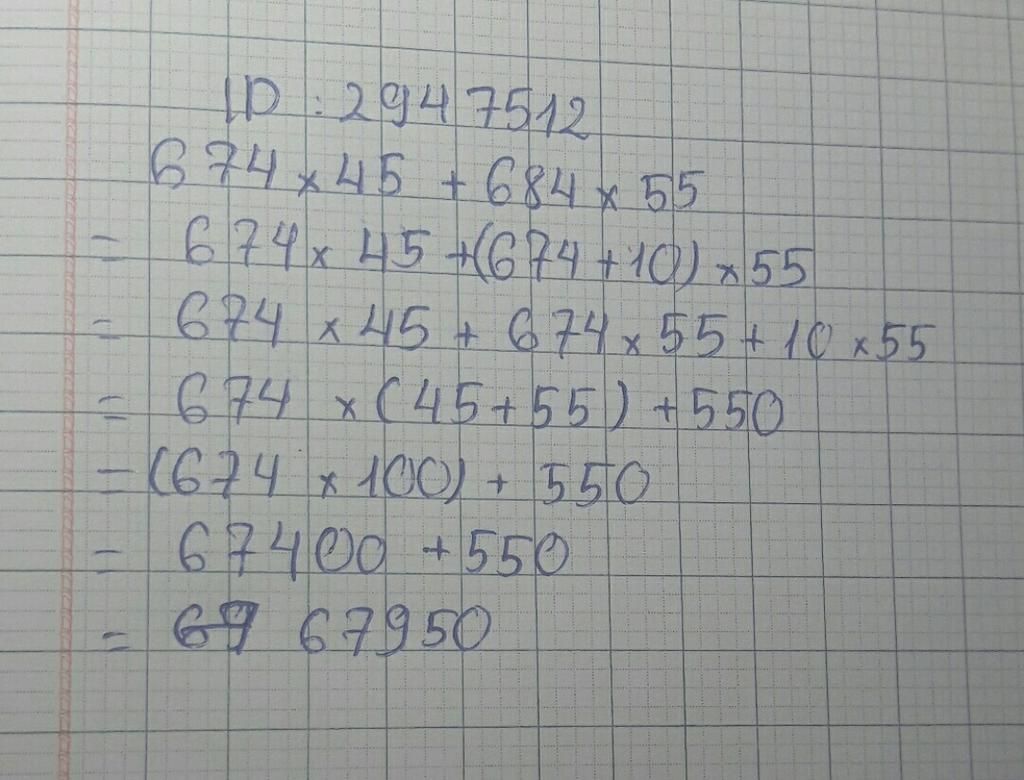 ID : 2947512
674 × 45 + 684 × 55
= 674 × 45 + (674 + 10) × 55
= 674 × 45 + 674 × 55 + 10 × 55
= 674 × (45 + 55) + 550
= (674 × 100) + 550
= 67400 + 550
= 67950